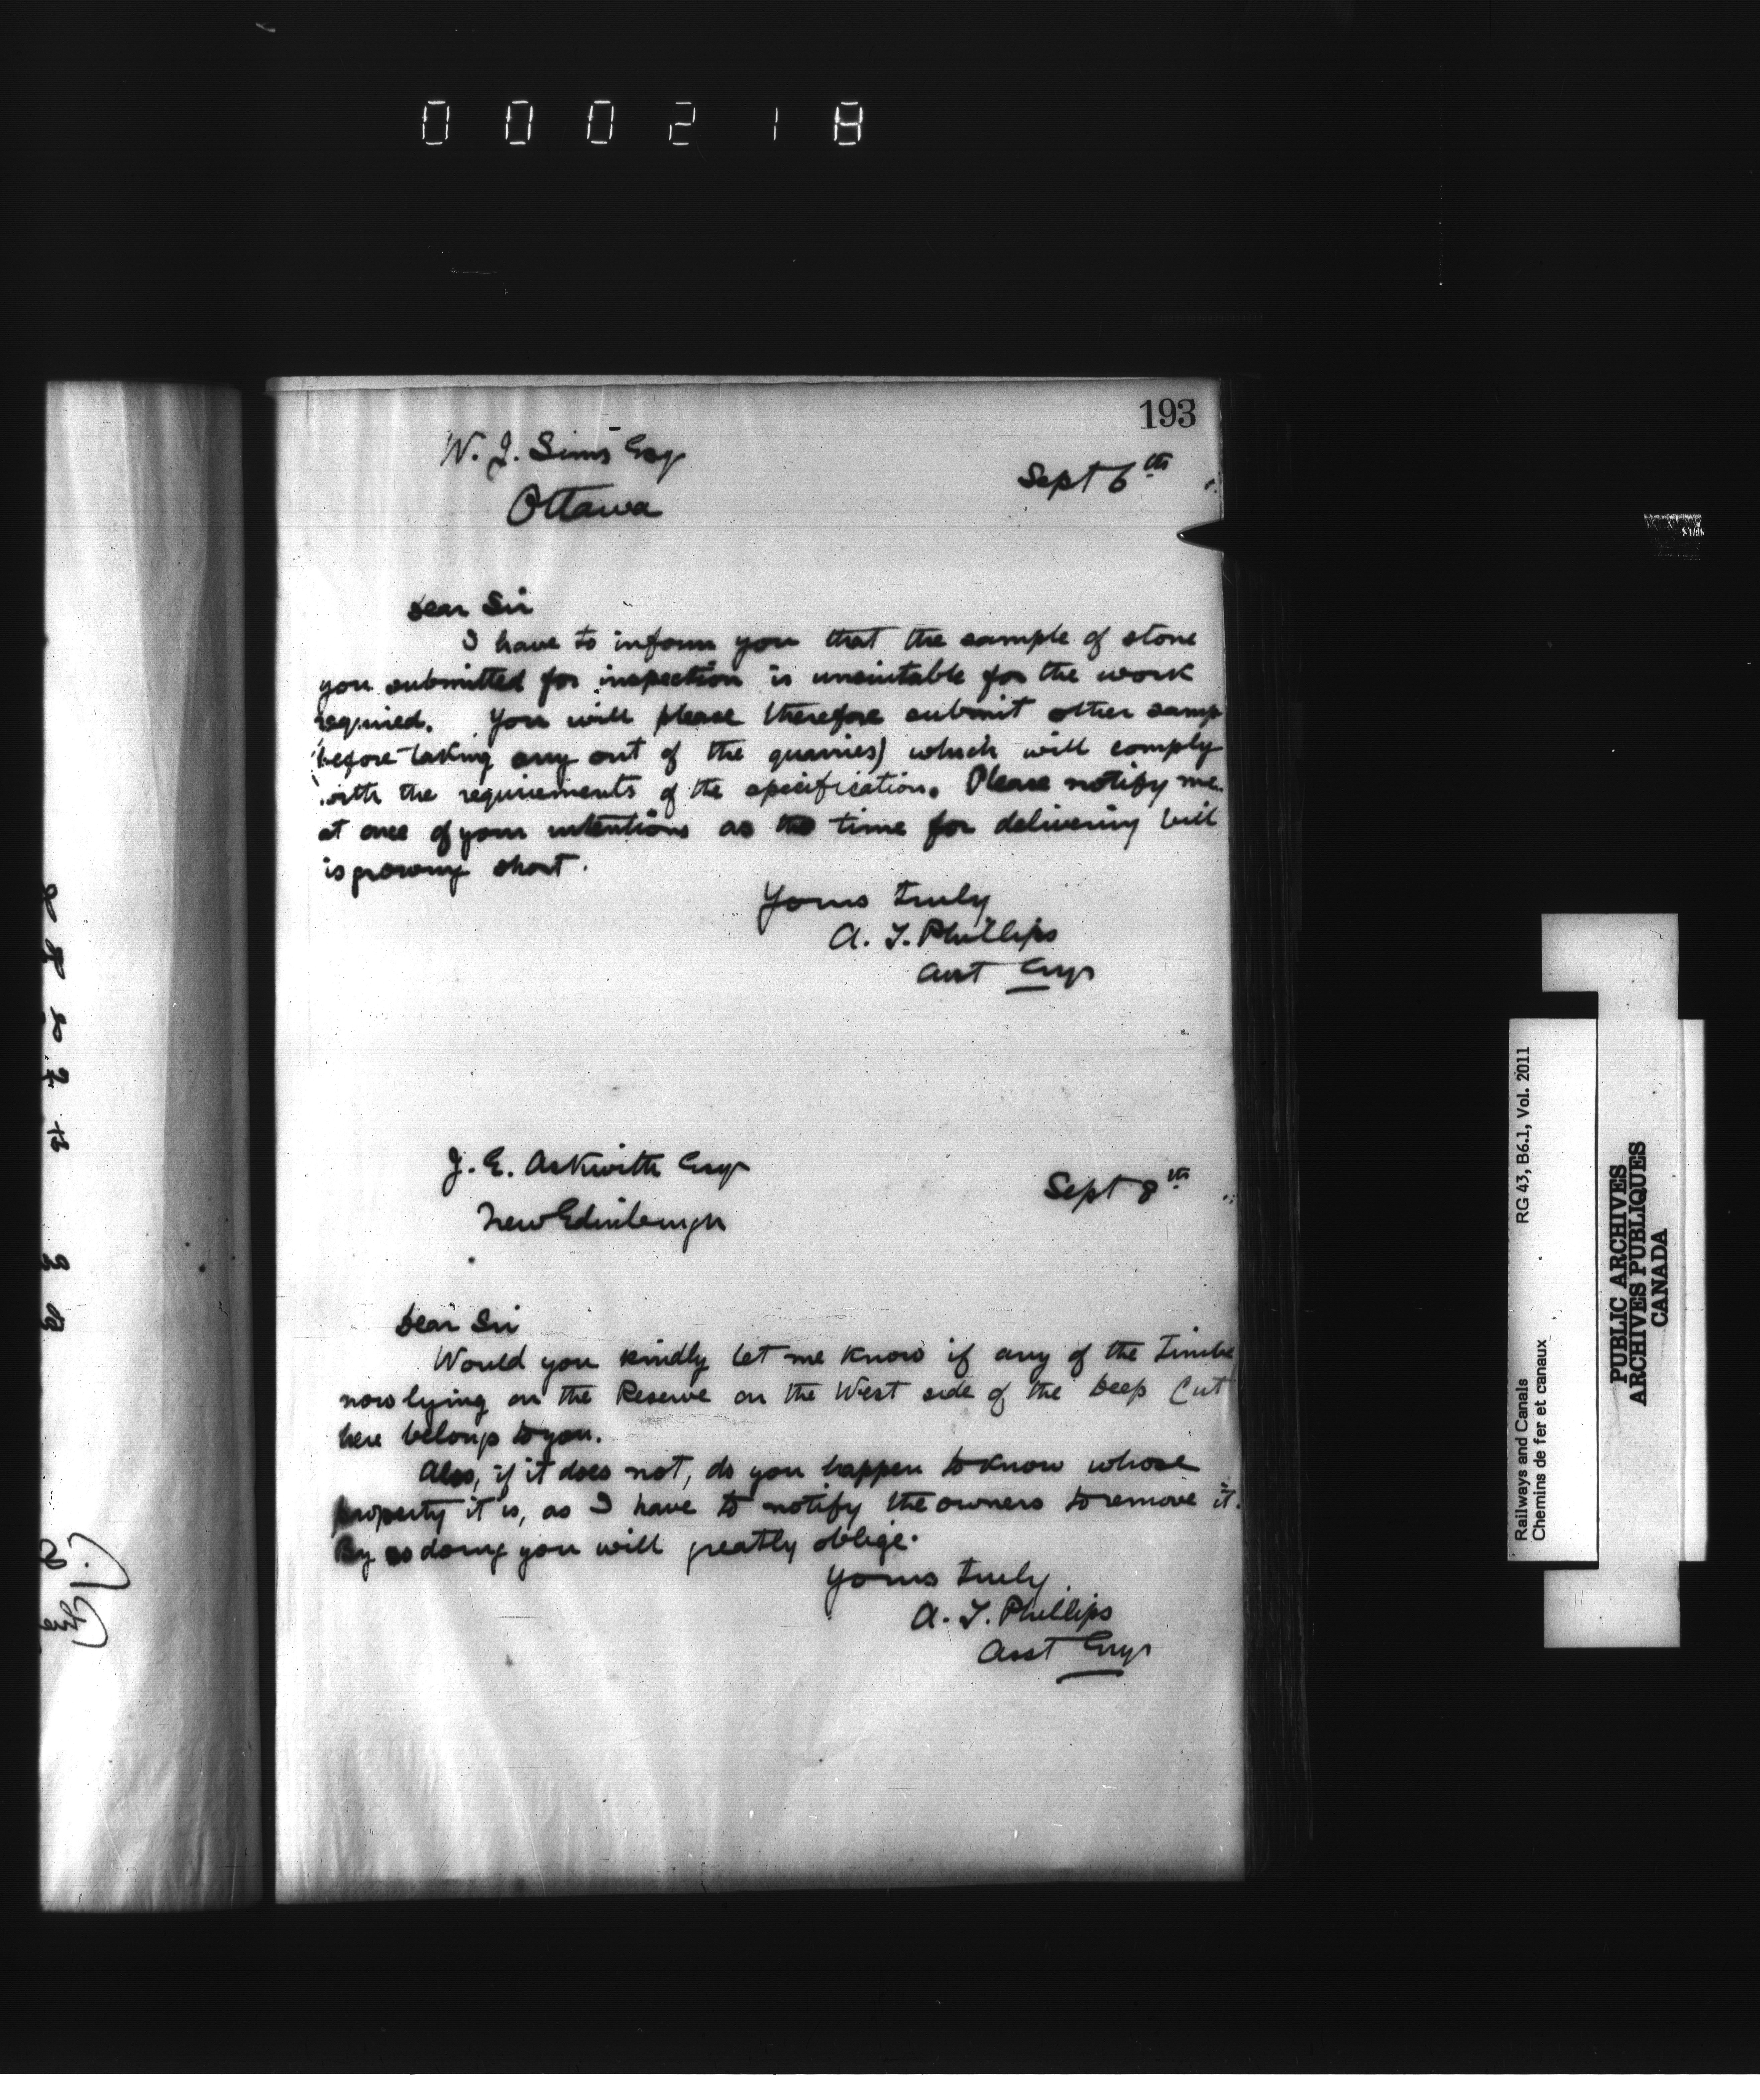 000218
193
W. J. Sims Esq
Sept 6th
Ottawa
Dear Sir
I have to inform you that the sample of stone
you submitted for inspection is unsuitable for the work
required. You will please therefore submit other samp
before taking any out of the quarries) which will comply
with the requirements of the specification. Please notify me
at once of your intentions as the time for delivering bill
is growing short.
Yours truly
A. T. Phillips
Asst Engr
J. E. Askwith Esqr
Sept 8th
New Edinburgh
Dear Sir
Would you kindly let me know if any of the timbe
now lying on the Reserve on the West side of the Deep Cut
here belongs to you.
Also, if it does not, do you happen to know whose
property it is, as I have to notify the owners to remove it.
By so doing you will greatly oblige.
Yours truly.
A. T. Phillips
Asst Engr
Railways and Canals RG 43, B6.1, Vol. 2011
Chemins de fer et canaux
PUBLIC ARCHIVES
ARCHIVES PUBLIQUES
CANADA